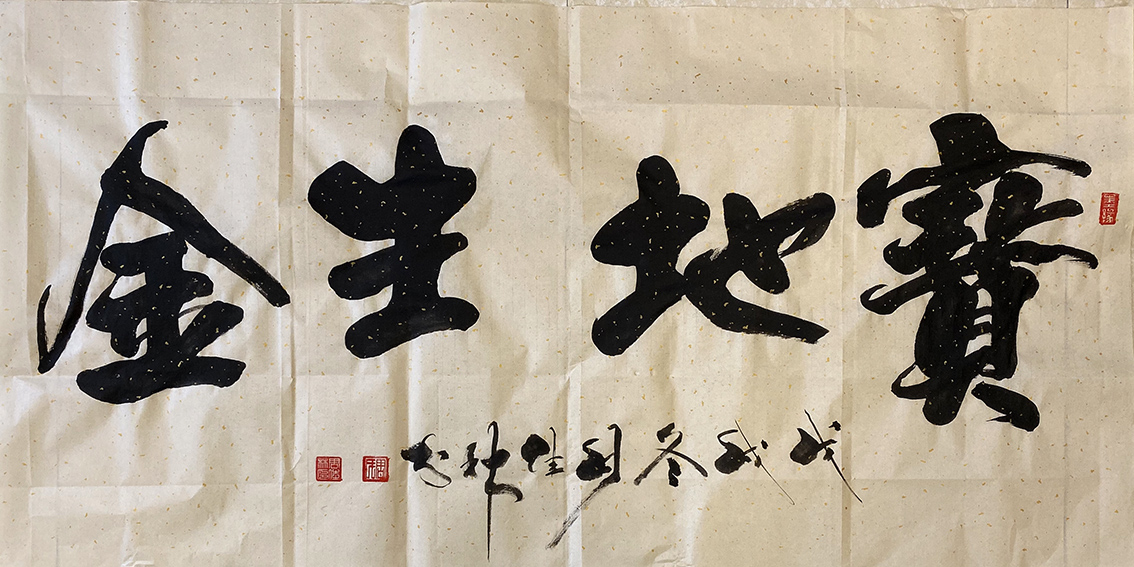 寶地生金
戊戌冬周佳书